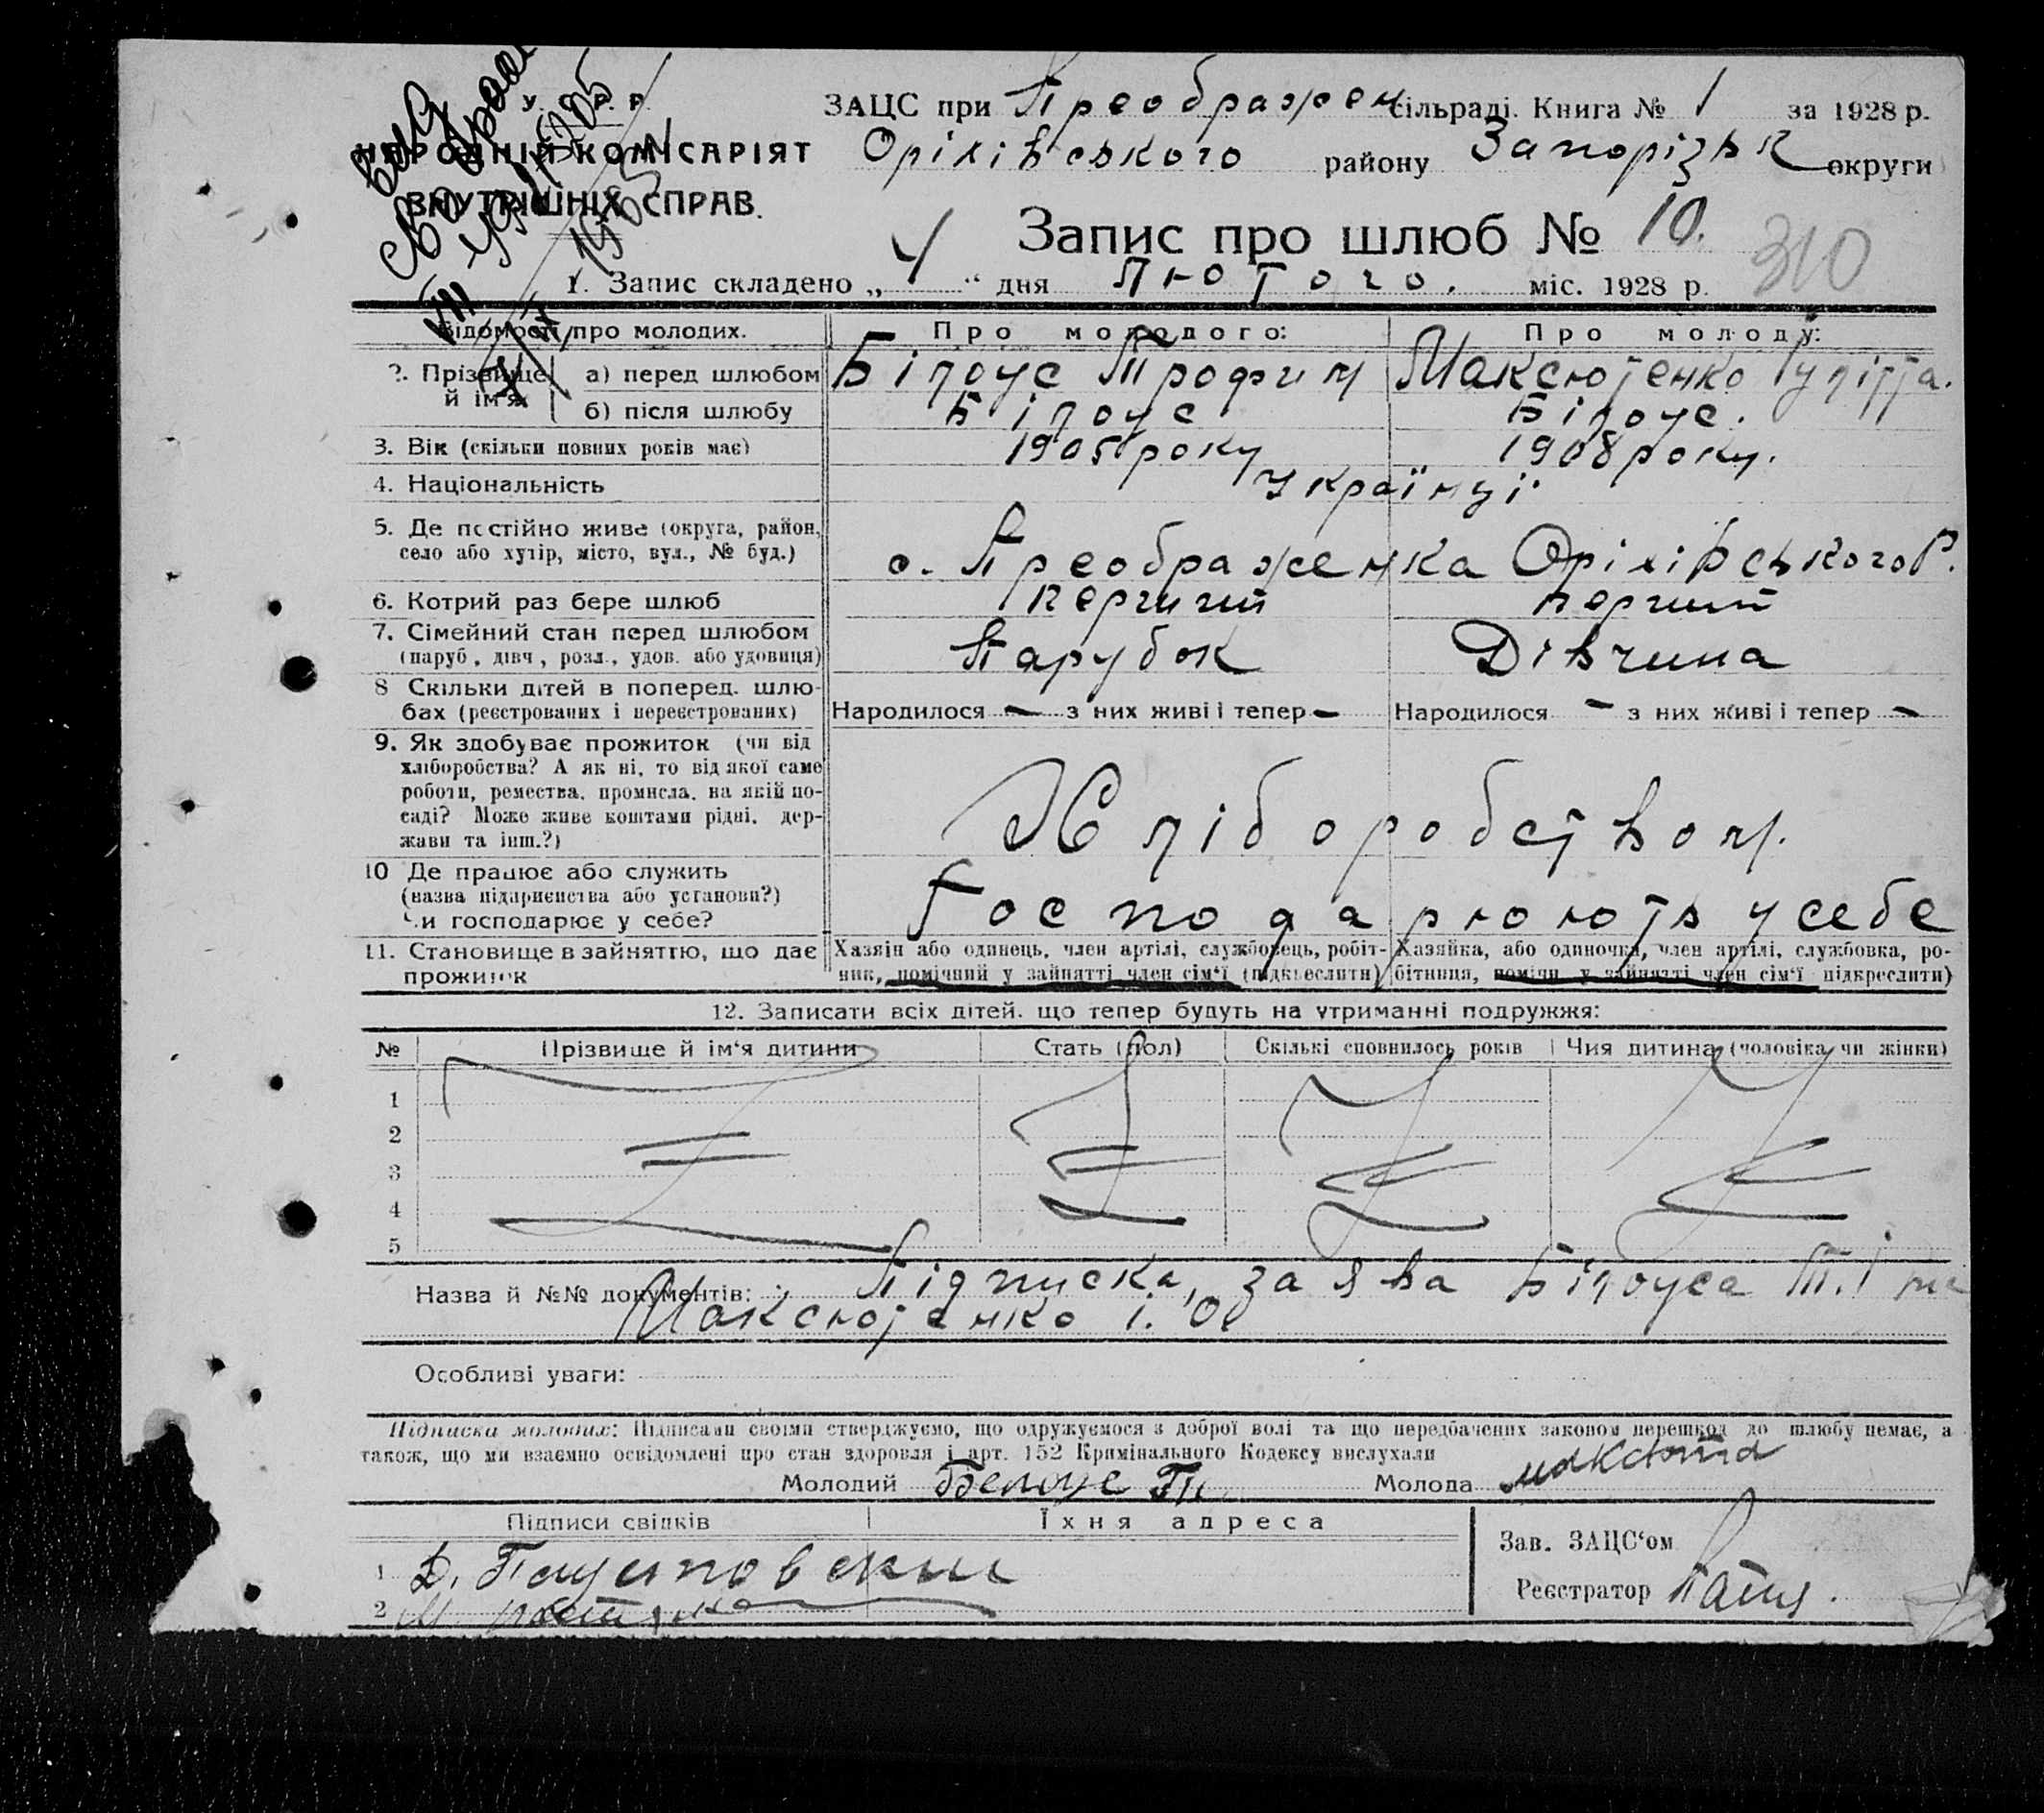 У. С. Р. Р.
НАРОДНІЙ КОМІСАРІЯТ
ВНУТРІШНІХ СПРАВ.
ЗАЦС при Преображен сільраді. Книга № 1 за 1928 р.
Оріхівського району Запорізьк округи
Запис про шлюб № 10.
310
1. Запис складено „4“ дня Лютого. міс. 1928 р.
Відомості про молодих. Про молодого: Про молоду:
2. Прізвище й ім'я а) перед шлюбом Білоус Трофим Максютенко
б) після шлюбу Білоус Білоус.
3. Вік (скільки повних років має) 1905 року 1908 року.
4. Національність Українці
5. Де постійно живе (округа, район, село або хутір, місто, вул., № буд.) с. Преображенка Оріхівського Р.
6. Котрий раз бере шлюб перший перший
7. Сімейний стан перед шлюбом Парубок Дівчина
(паруб., дівч., розл., удов. або удовиця)
8 Скільки дітей в поперед. шлюбах (реєстрованих і нереєстрованих) Народилося — з них живі і тепер — Народилося — з них живі і тепер —
9. Як здобуває прожиток (чи від
хліборобства? А як ні, то від якої саме
роботи, ремества, промисла, на якій посаді? Може живе коштами рідні, держави та інш.?) Хліборобством.
10 Де працює або служить
(назва підприємства або установи?)
Чи господарює у себе? Господарюють у себе
11. Становище в зайняттю, що дає прожиток
Хазяїн або одинець, член артілі, службовець, робітник, помічний у зайнятті член сім'ї (підкреслити)
Хазяйка, або одиночка, член артілі, службовка, робітниця, помічн. у зайнятті член сім'ї підкреслити)
12. Записати всіх дітей, що тепер будуть на утриманні подружжя:
№ Прізвище й ім'я дитини Стать (пол) Скількі сповнилось років Чия дитина (чоловіка чи жінки)
1
2
3
4
5
Назва й №№ документів: Підписка, заява Білоуса Т. і
Максютенко
Особливі уваги:
Підписка молодих: Підписами своїми стверджуємо, що одружуємося з доброї волі та що передбачених законом перешкод до шлюбу немає, а
також, що ми взаємно освідомлені про стан здоров'я і арт. 152 Кримінального Кодексу вислухали
Молодий Белоус Молода
Підписи свідків Їхня адреса
1
2
Зав. ЗАЦС'ом
Реєстратор